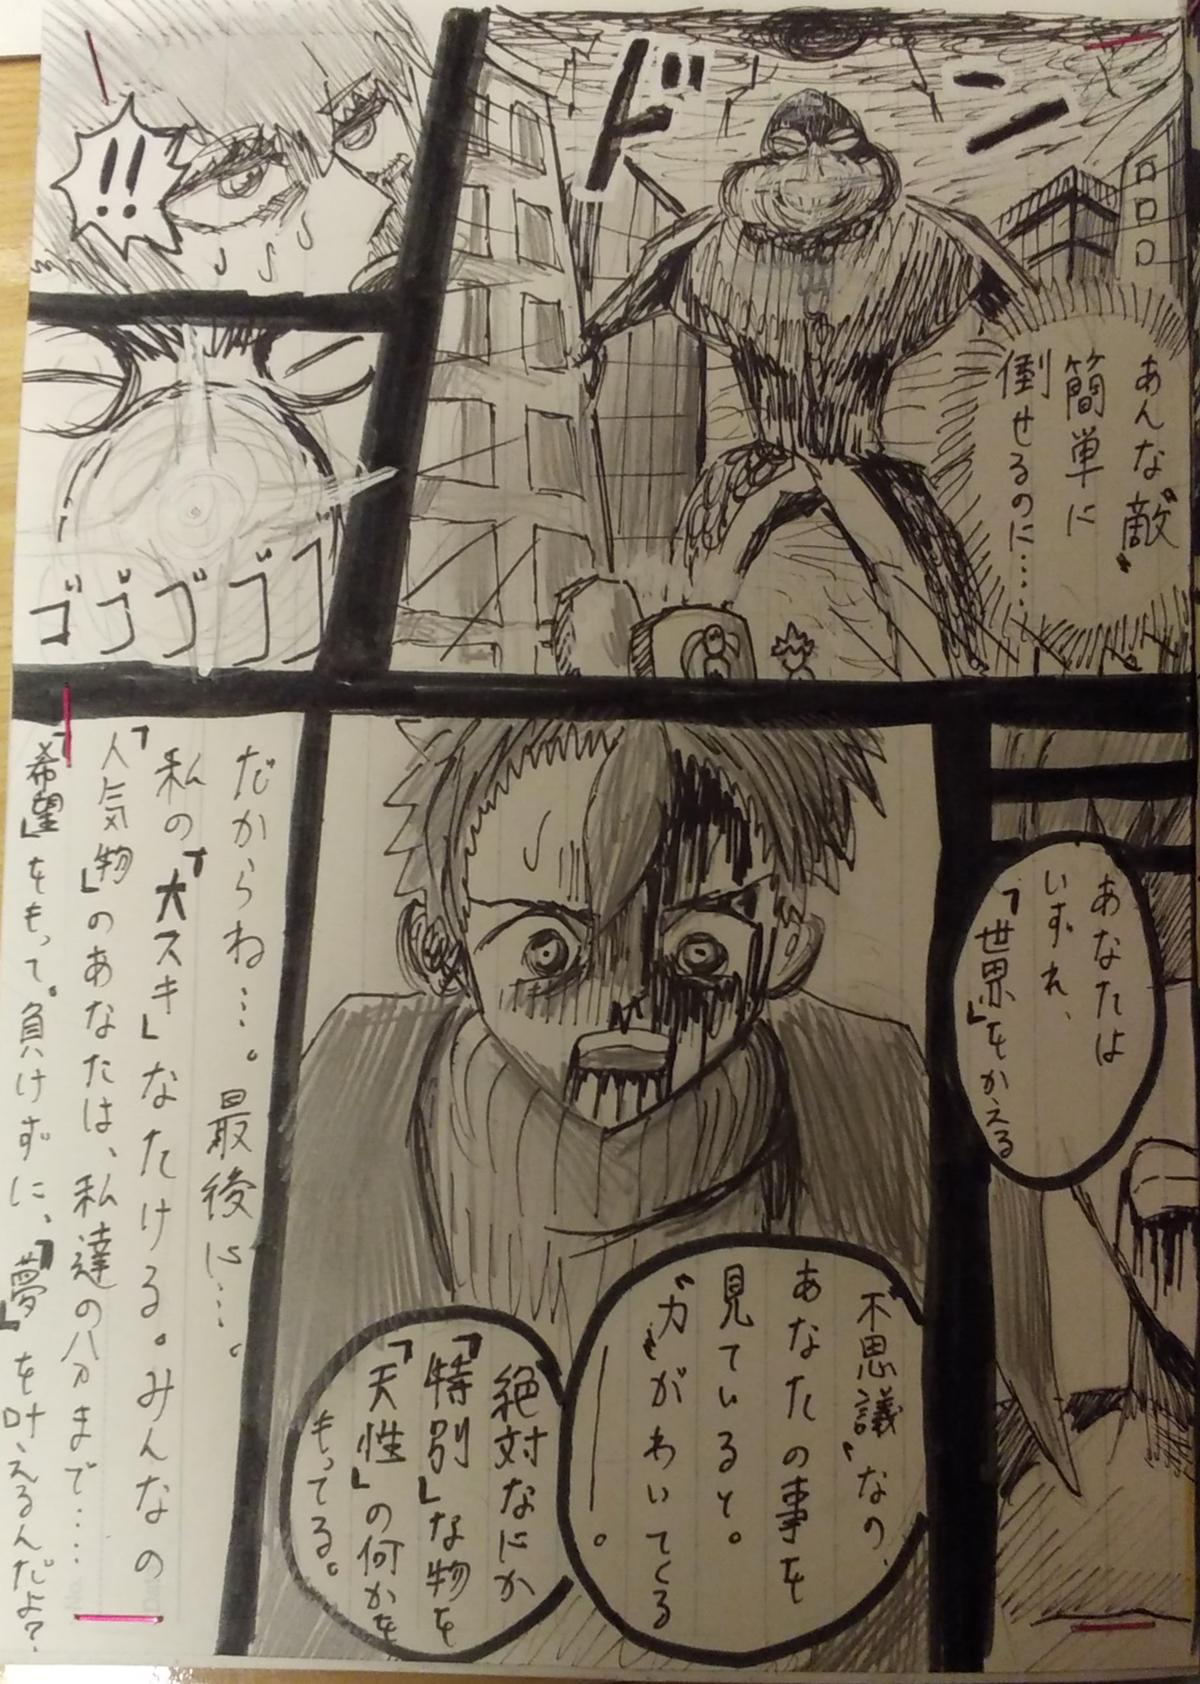 ドン
あんな〝敵〟
簡単に
倒せるのに……
!!
ゴゴゴゴゴ
あなたは
いずれ、
「世界」をかえる
〝不思議〟なの、
あなたの事を
見ていると。
〝力〟がわいてくる
――。
絶対なにか
「特別」な物を
「天性」の何かを
もってる。
だからね…。最後に…。
私の「大スキ」なたける。みんなの
「人気物」のあなたは、私達の分まで……
「希望」をもって。負けずに、「夢」を叶えるんだよ?